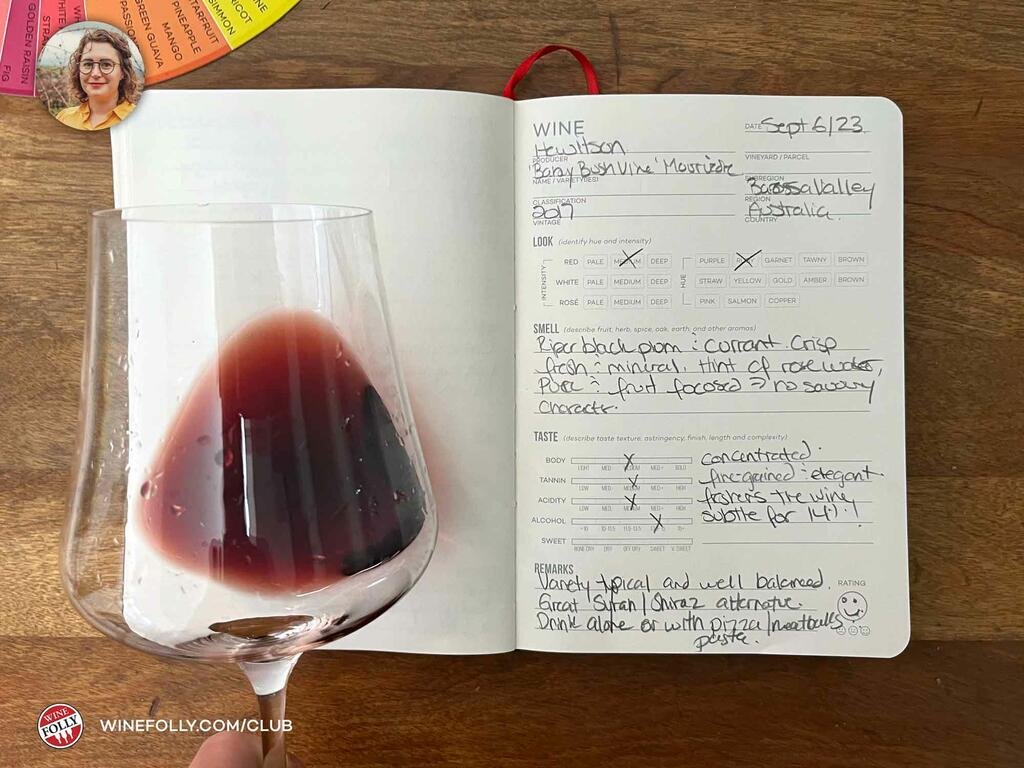 WINE
SIMMON
RICOT
STARFRUIT
PINEAPPLE
MANGO
GREEN GUAVA
PASSION
GOLDEN RAISIN
FIG
WINE
DATE Sept 6/23
Hewitson
PRODUCER
VINEYARD / PARCEL
'Baby Bush Vine' Mourvèdre
NAME / VARIETY(IES)
SUBREGION
Barossa Valley
CLASSIFICATION
REGION
2017
Australia.
VINTAGE
COUNTRY
LOOK (identify hue and intensity)
INTENSITY
RED PALE MEDIUM DEEP
WHITE PALE MEDIUM DEEP
ROSÉ PALE MEDIUM DEEP
HUE
PURPLE RUBY GARNET TAWNY BROWN
STRAW YELLOW GOLD AMBER BROWN
PINK SALMON COPPER
SMELL (describe fruit, herb, spice, oak, earth, and other aromas)
Ripe black plum : currant. Crisp
fresh : mineral. Hint of rose water,
Pure : fruit focused => no savoury
characts.
TASTE (describe taste texture, astringency, finish, length and complexity)
BODY concentrated.
LIGHT MED- MEDIUM MED+ BOLD
TANNIN fine-grained : elegant.
LOW MED- MEDIUM MED+ HIGH
ACIDITY freshens the wine,
LOW MED- MEDIUM MED+ HIGH
ALCOHOL subtle for 14%!
<10 10-11.5 11.5-13.5 15+
SWEET
BONE DRY DRY OFF DRY SWEET V. SWEET
REMARKS
Variety typical and well balanced.
RATING
Great Syrah/Shiraz alternative.
Drink alone or with pizza/meatballs
pasta.
WINE FOLLY
WINEFOLLY.COM/CLUB